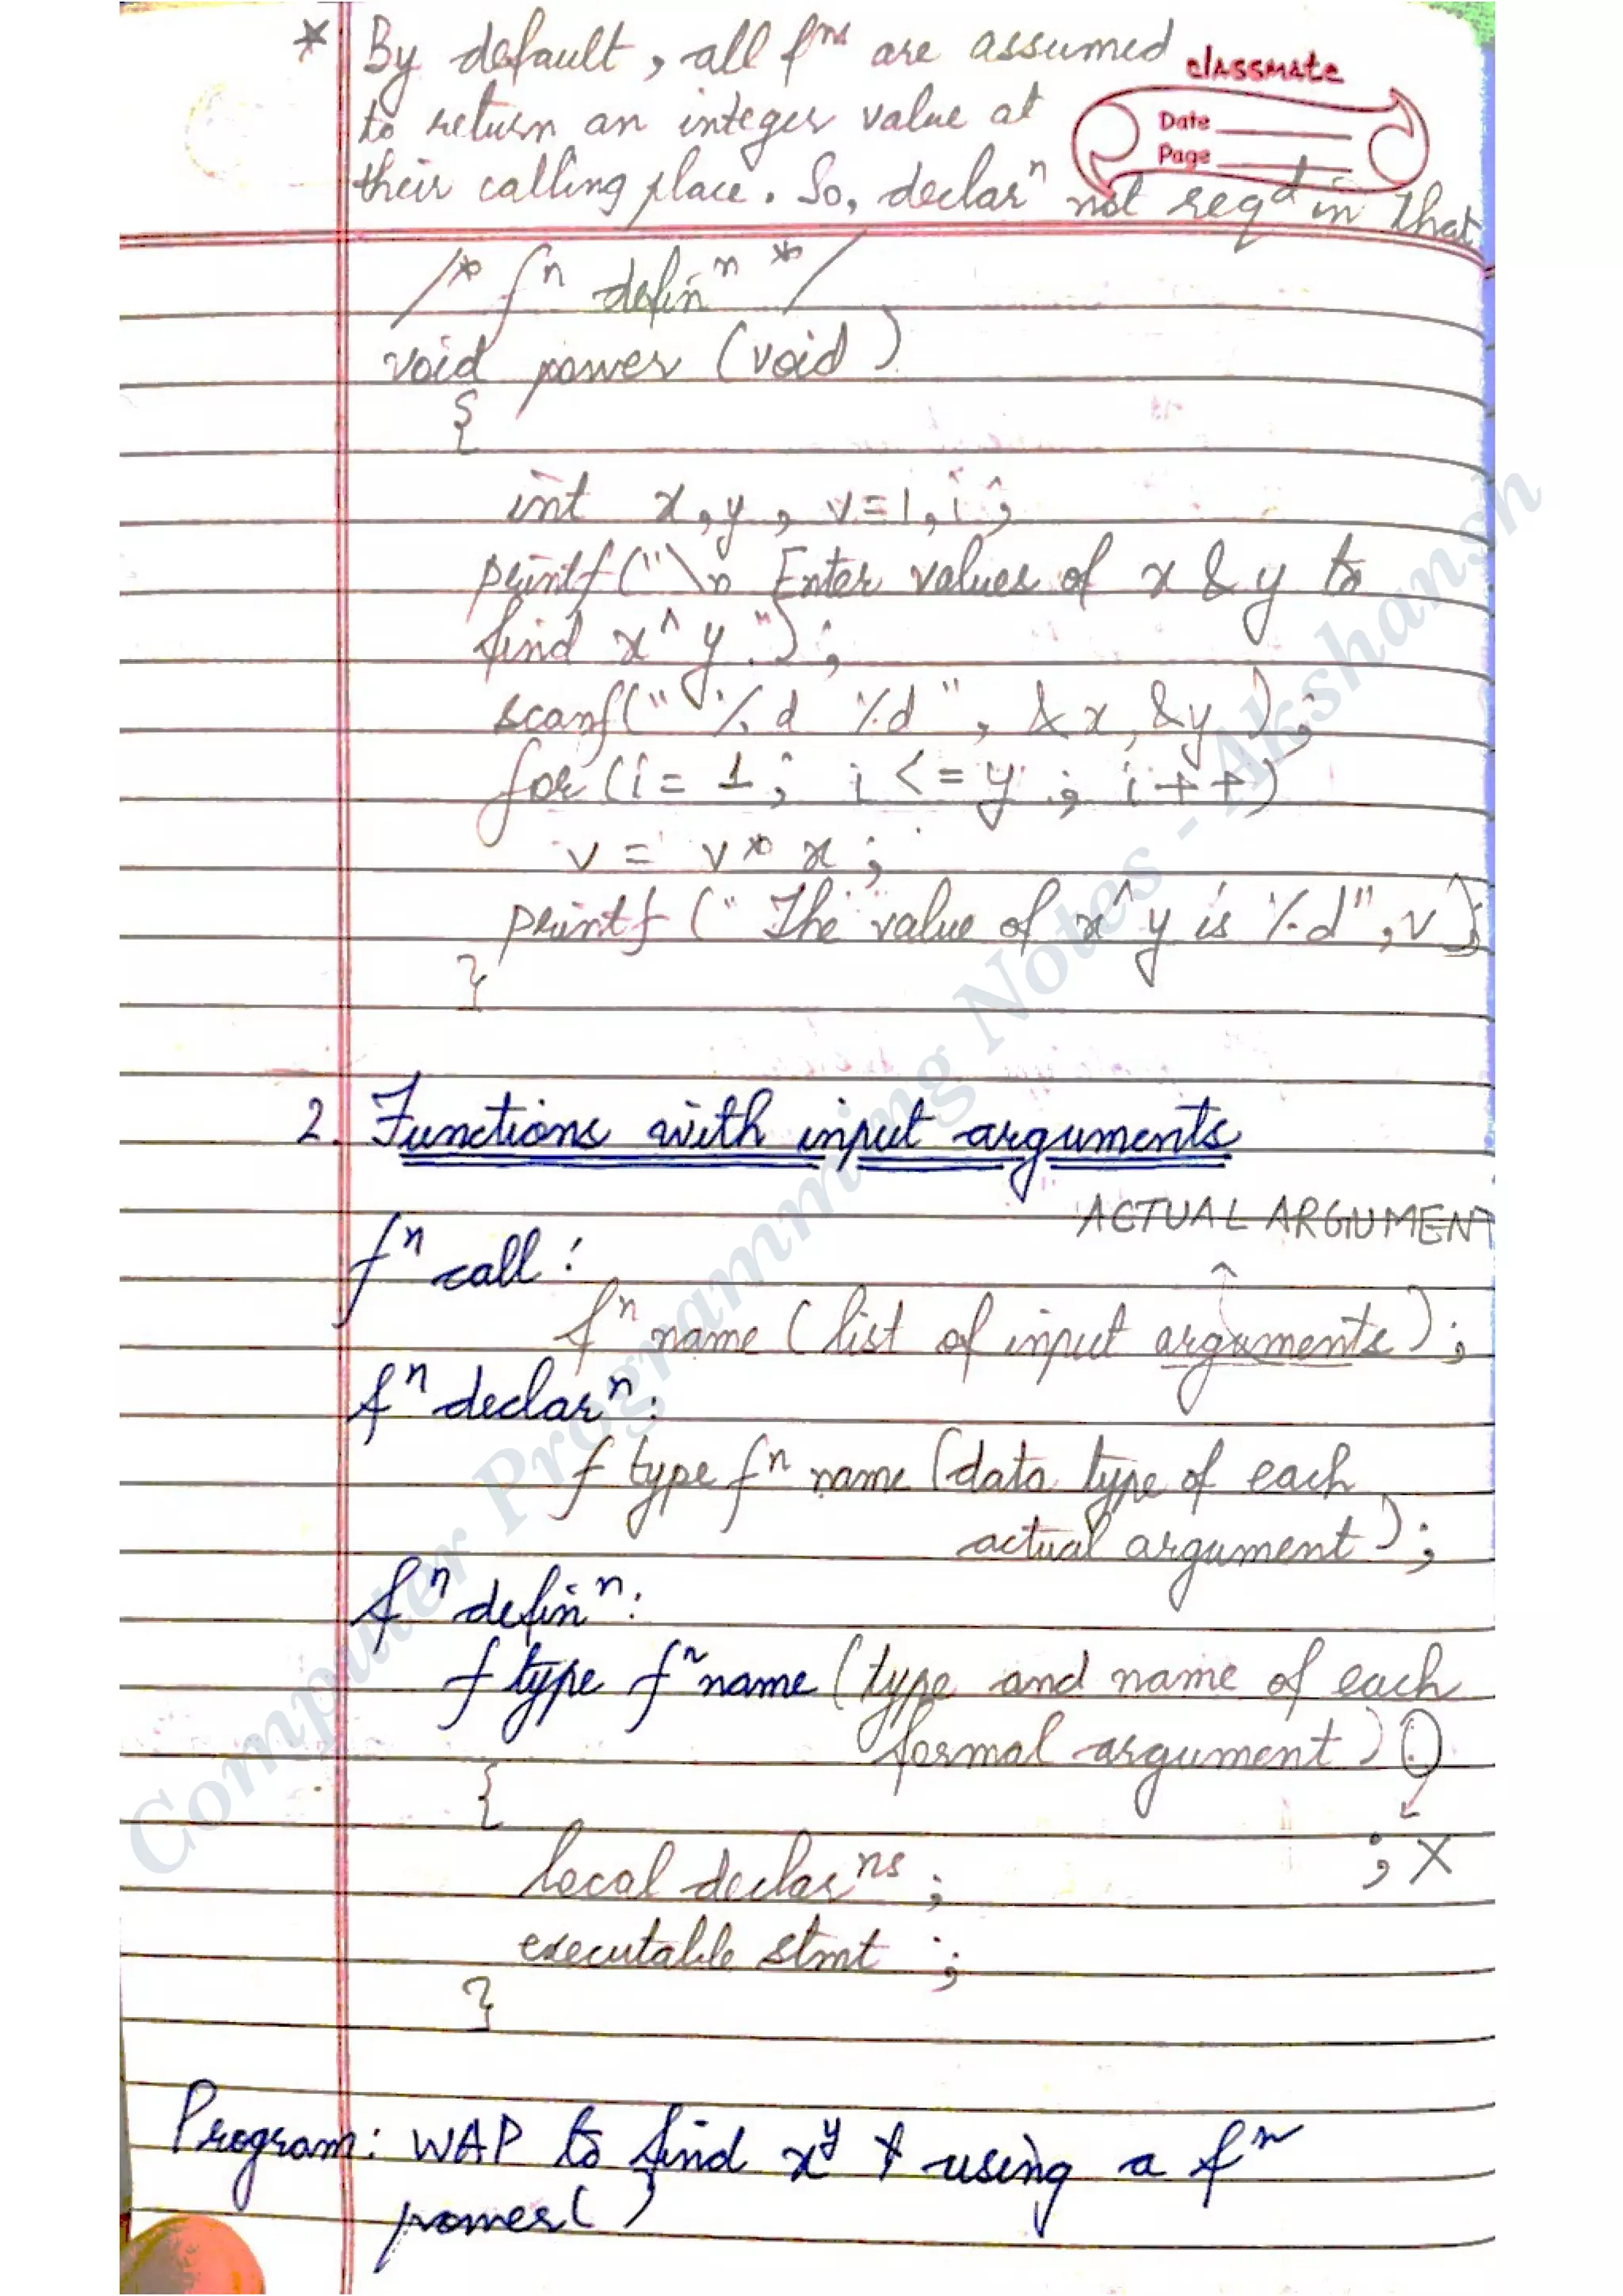 * By default, all fⁿˢ are assumed
classmate
to return an integer value at
Date
Page
their calling place. So, declarⁿ not reqᵈ in that
/* fⁿ definⁿ */
void power (void)
{
int x, y, v=1, i;
printf("\n Enter values of x & y to
find x^y.");
scanf("%d %d", &x, &y);
for(i=1; i<=y; i++)
v = v* x;
printf("The value of x^y is %d", v);
}
2. Functions with input arguments
ACTUAL ARGUMENT
fⁿ call:
fⁿ name (list of input arguments);
fⁿ declarⁿ:
f type fⁿ name (data type of each
actual argument);
fⁿ definⁿ:
f type fⁿ name (type and name of each
formal argument)
{
; X
local declarⁿˢ;
executable stmt ;
}
Program: WAP to find xʸ using a fⁿ
power()
Computer Programming Notes - Akshansh